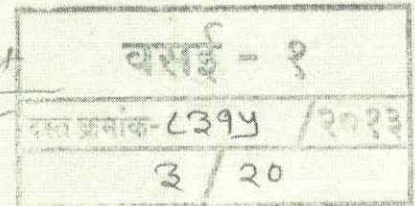 वसई - १
दस्त क्रमांक-८३१५ /२०१३
३ / २०